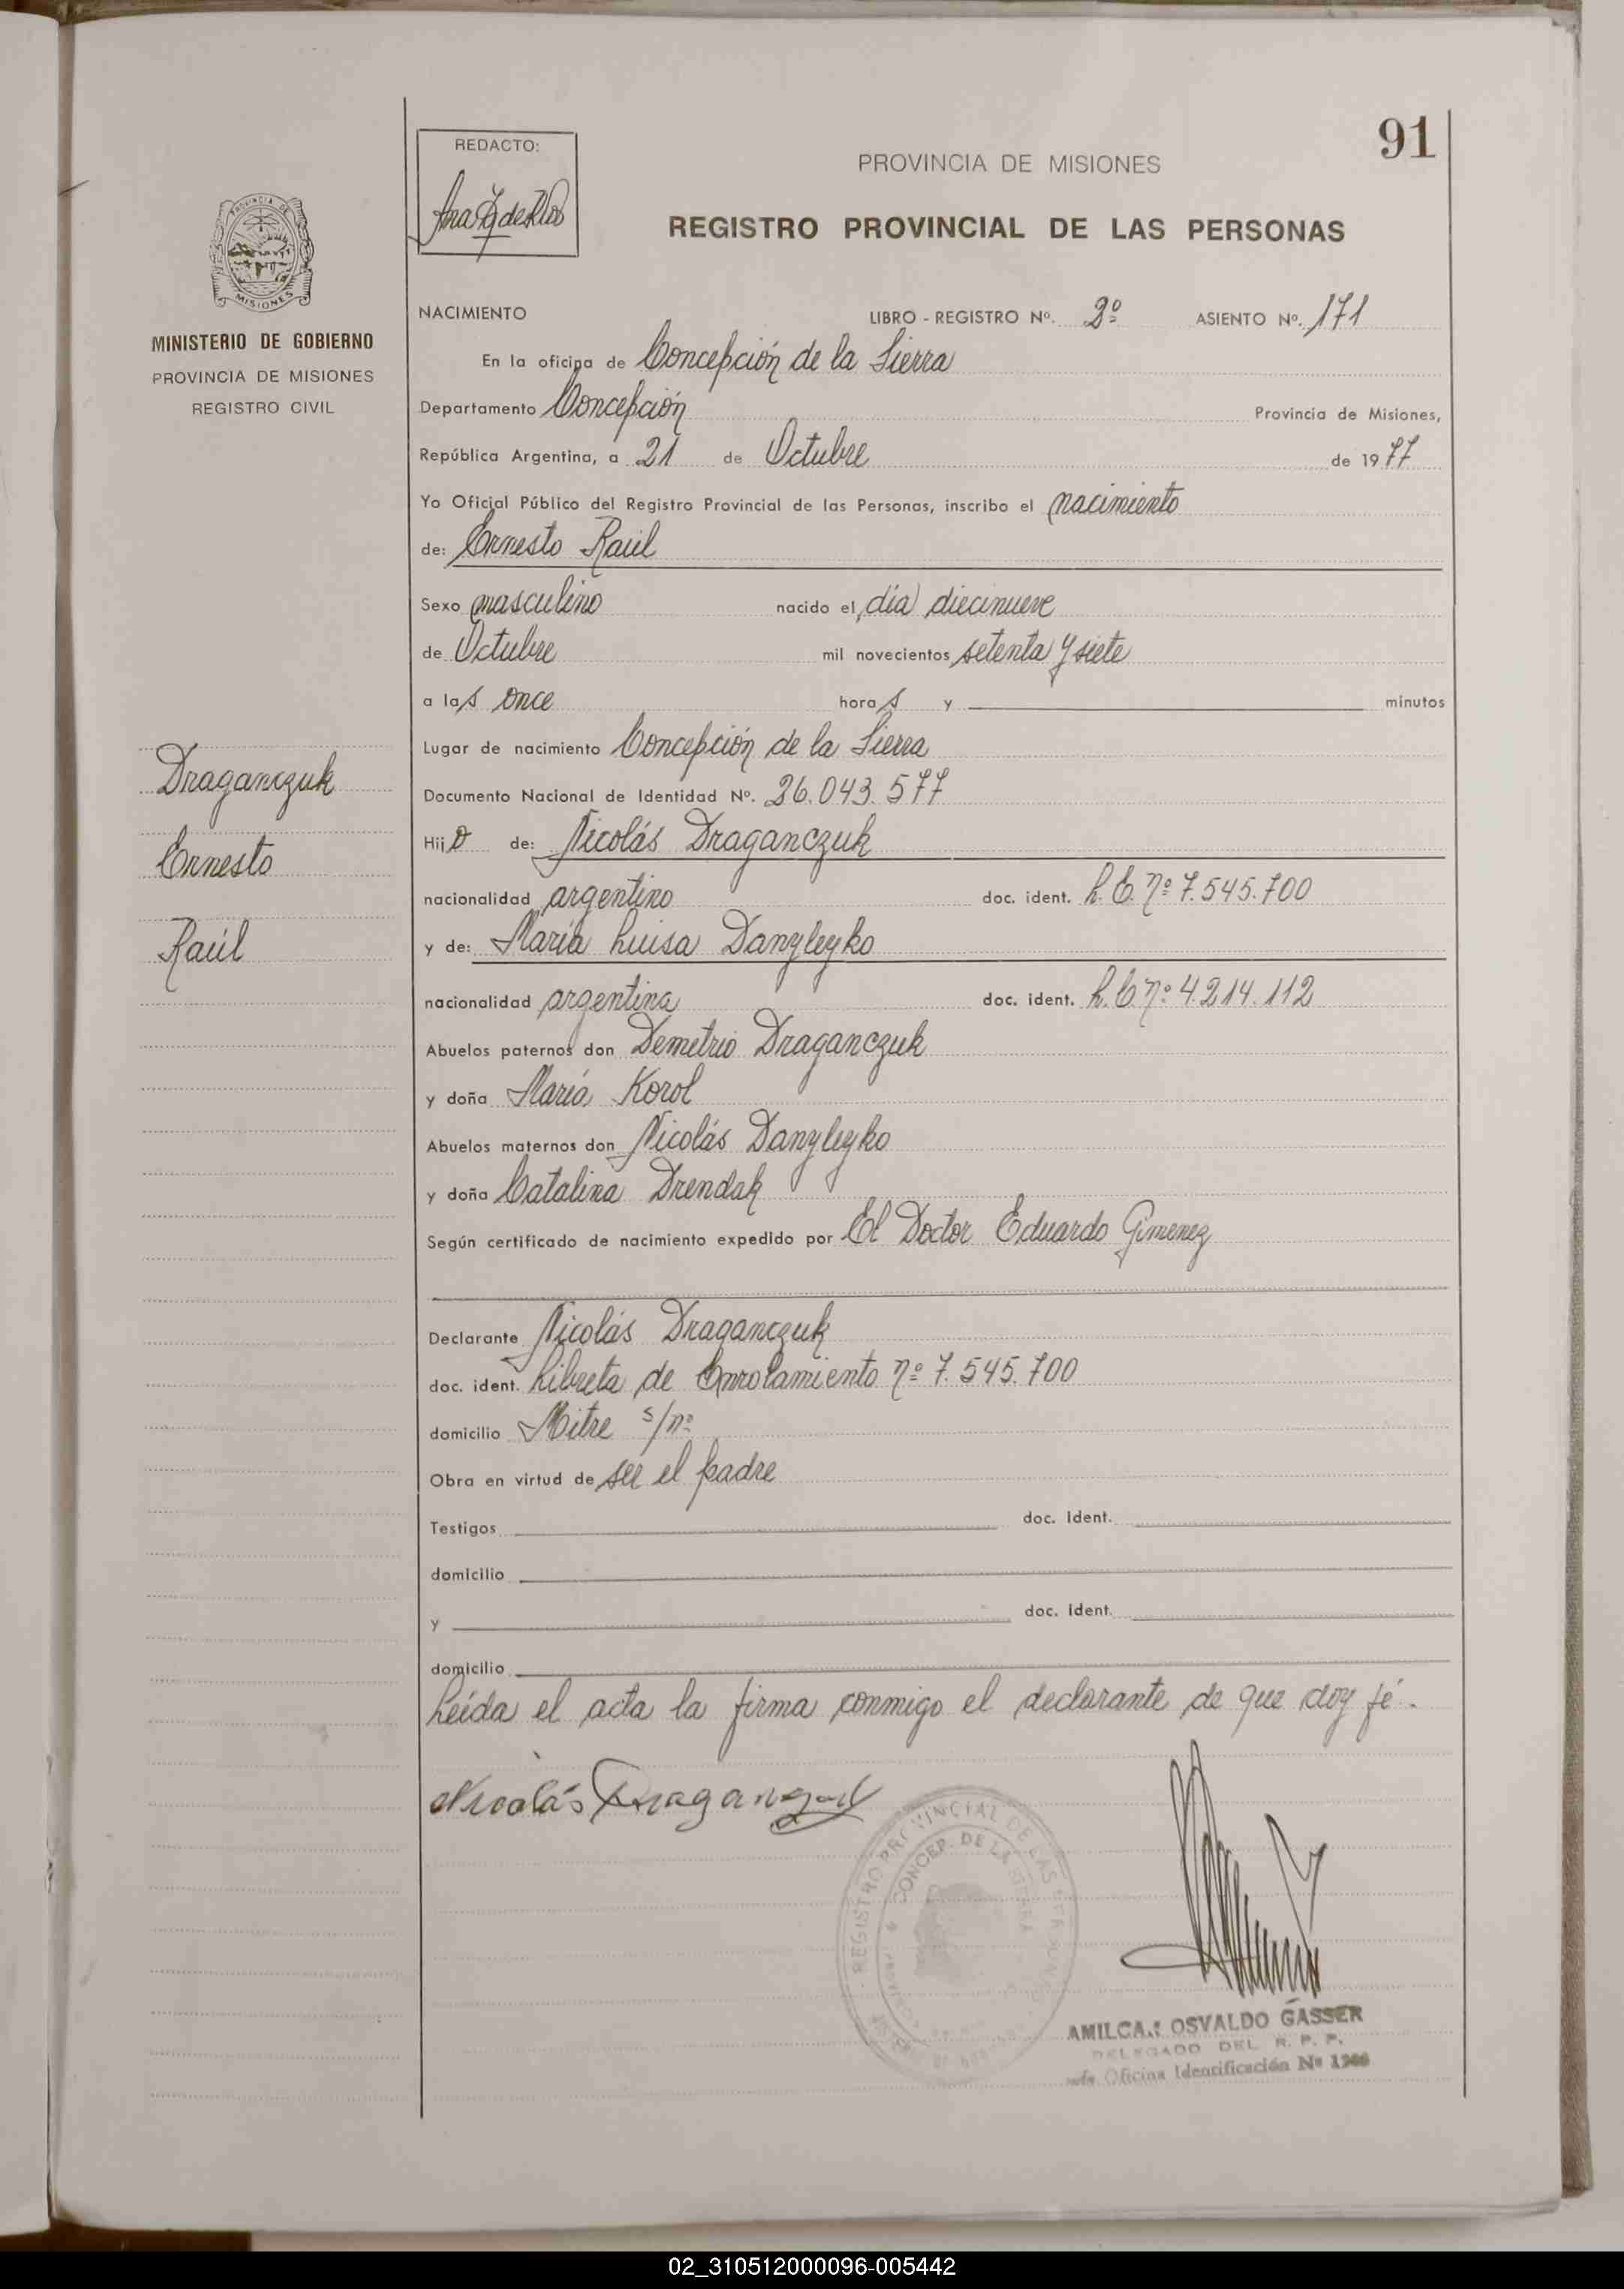 91
REDACTO:
PROVINCIA DE MISIONES
REGISTRO PROVINCIAL DE LAS PERSONAS
PROVINCIA DE
MISIONES
MINISTERIO DE GOBIERNO
PROVINCIA DE MISIONES
REGISTRO CIVIL
NACIMIENTO LIBRO - REGISTRO Nº. 2º ASIENTO Nº. 171
En la oficina de Concepción de la Sierra
Departamento Concepción Provincia de Misiones,
República Argentina, a 21 de Octubre de 1977
Yo Oficial Público del Registro Provincial de las Personas, inscribo el nacimiento
de: Ernesto Raúl
Sexo masculino nacido el día diecinueve
de Octubre mil novecientos setenta y siete
a las once horas y minutos
Lugar de nacimiento Concepción de la Sierra
Documento Nacional de Identidad Nº. 26.043.577
Hijo de: Nicolás Draganczuk
nacionalidad argentino doc. ident. L.E. nº 7.545.700
y de: María Luisa Danyleyko
nacionalidad argentina doc. ident. L.C. nº 4.214.112
Abuelos paternos don Demetrio Draganczuk
y doña María Korol
Abuelos maternos don Nicolás Danyleyko
y doña Catalina Drendak
Según certificado de nacimiento expedido por El Doctor Eduardo Gimenez
Declarante Nicolás Draganczuk
doc. ident. Libreta de Enrolamiento nº 7.545.700
domicilio Mitre s/nº
Obra en virtud de ser el padre
Testigos doc. Ident.
domicilio
y doc. Ident.
domicilio
Leída el acta la firma conmigo el declarante de que doy fé.
Draganczuk
Ernesto
Raúl
Nicolás Draganczuk
REGISTRO PROVINCIAL DE LAS
CONCEP. DE LA SIERRA
AMILCAR OSVALDO GASSER
DELEGADO DEL R. P. P.
Oficina Identificación Nº
02_310512000096-005442